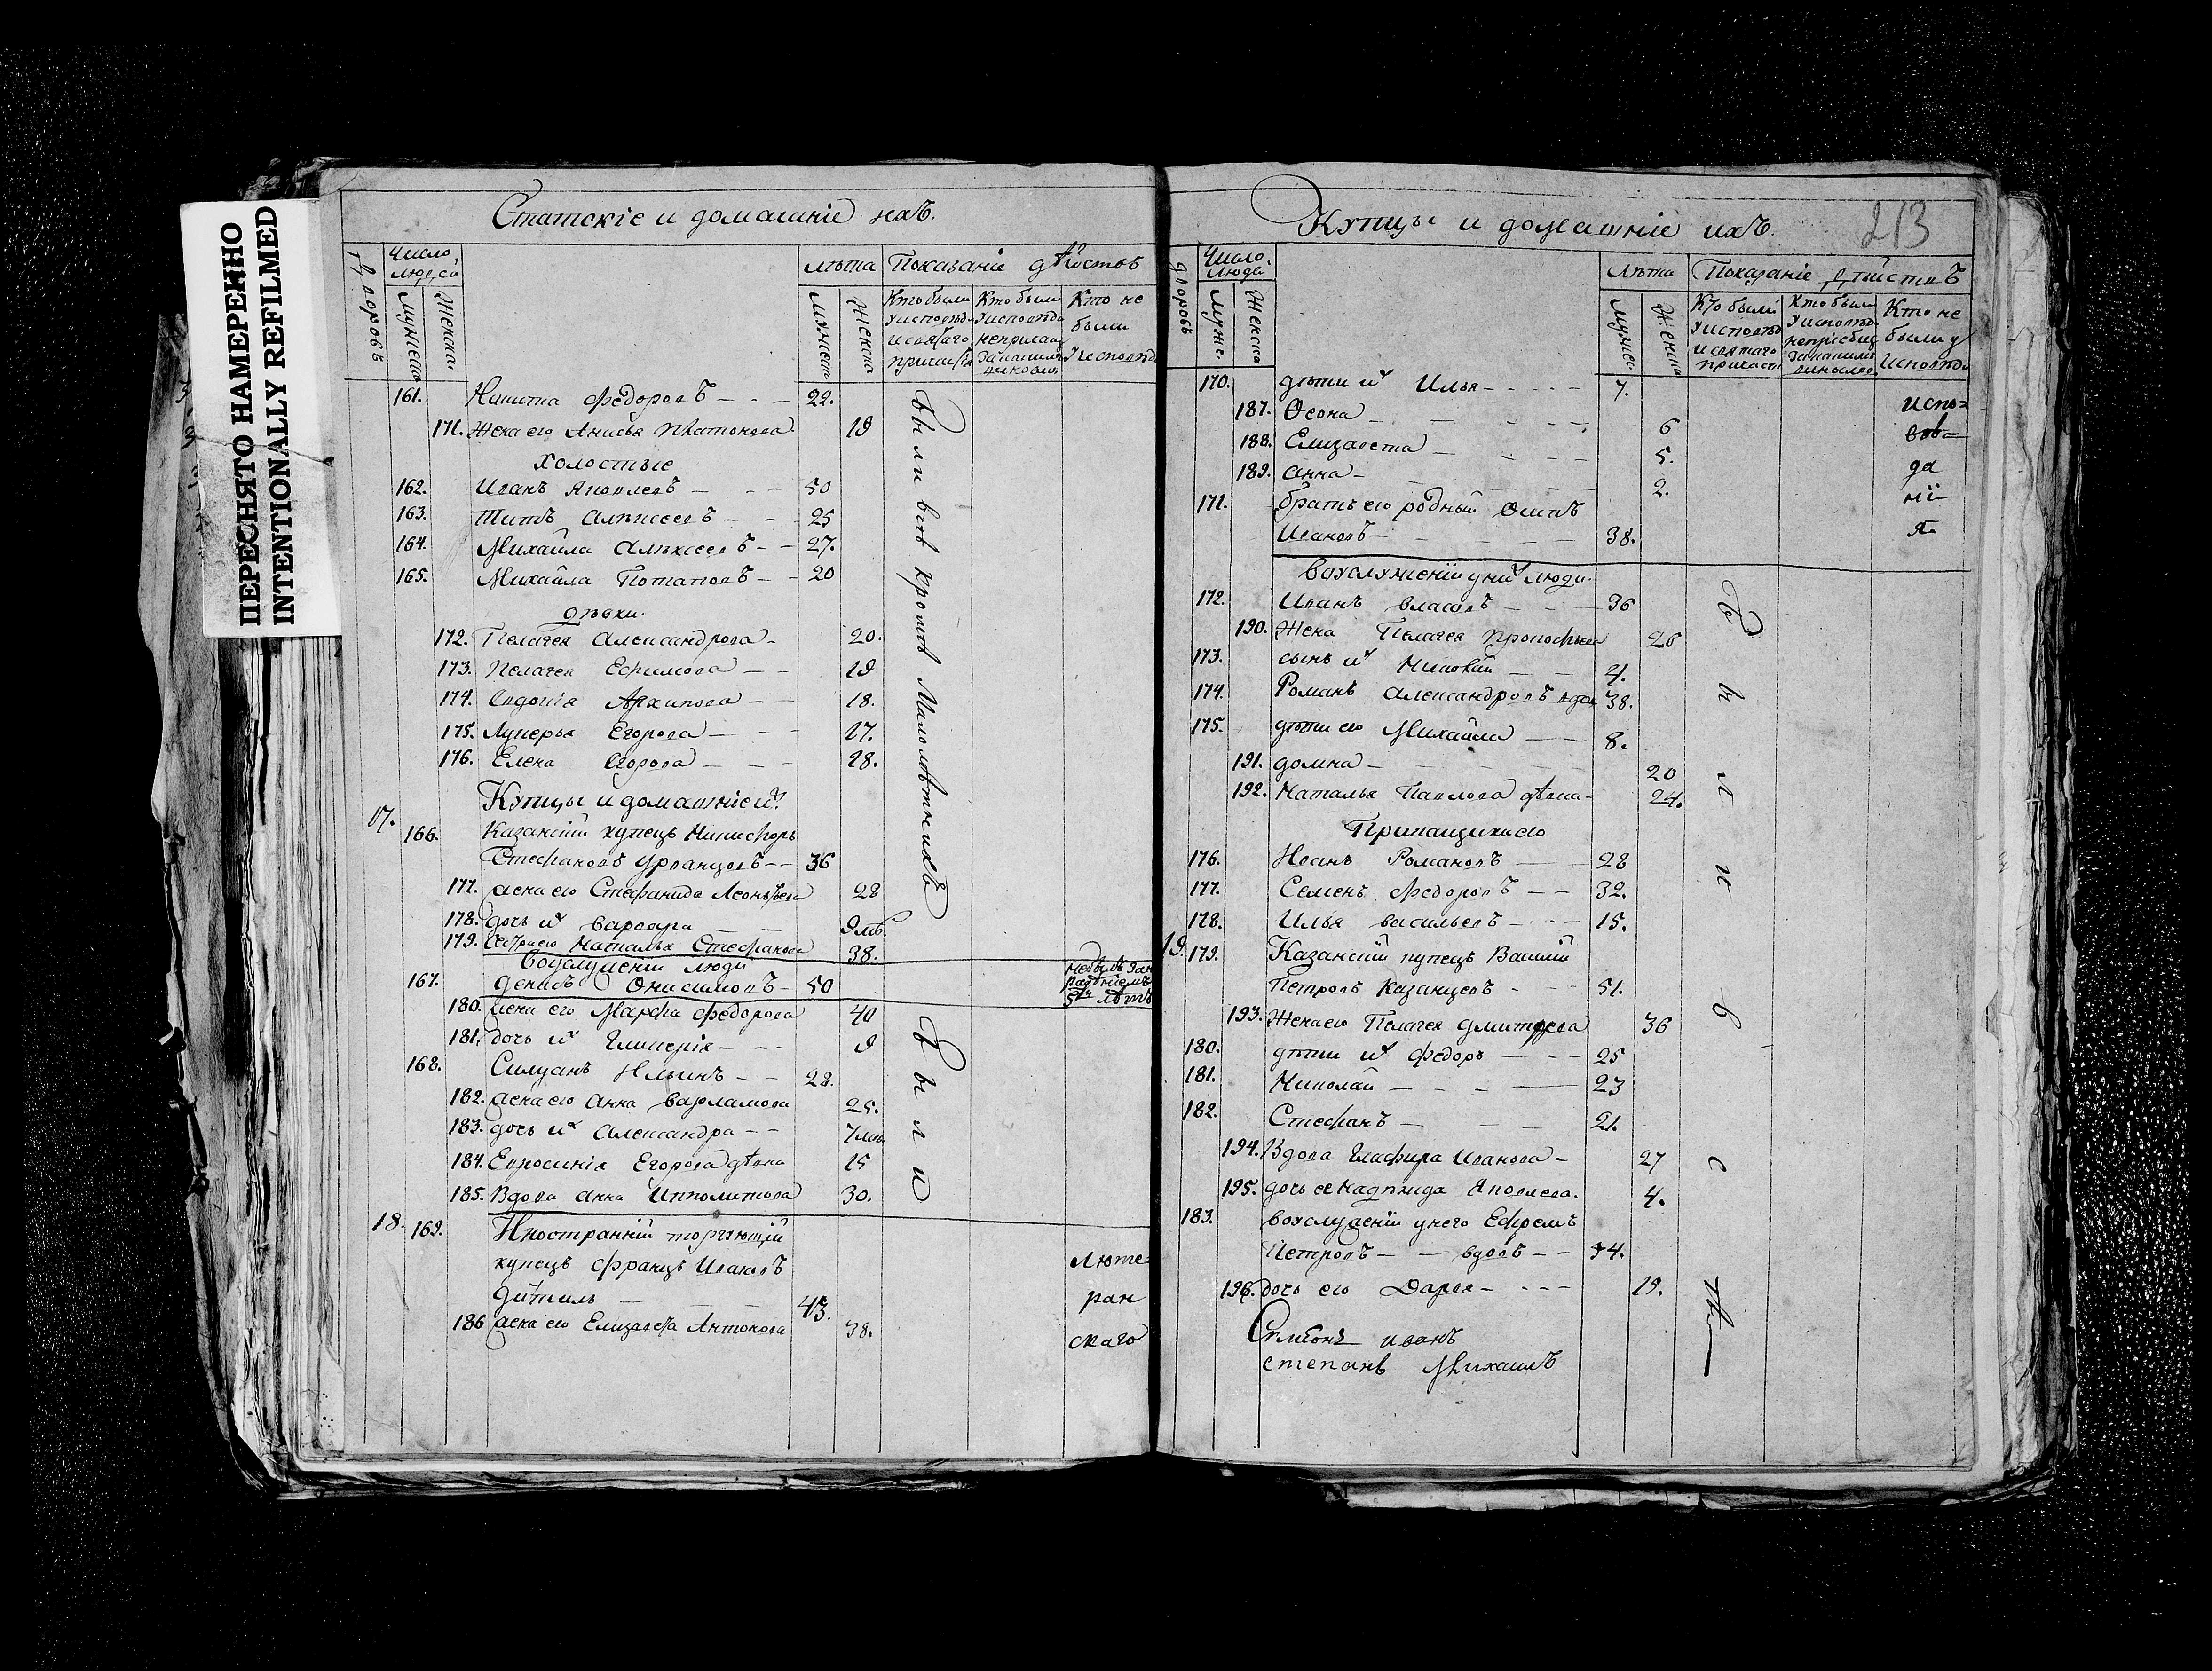 ПЕРЕСНЯТО НАМЕРЕННО
INTENTIONALLY REFILMED
Статскіе и домашніе ихъ.
Число людей
лѣта Показаніе дѣйствъ
дворовъ
мужеска
женска
мужеска
женска
Кто были у исповѣди и святаго причастія
Кто были у исповѣди
Кто не были у исповѣди
161. Никита Федоровъ - - - 22.
171. Жена его Анисья Платонова 19
Холостые
162. Иванъ Яковлевъ - - - 50
163. Титъ Алексеевъ - - 25
164. Михайла Алексеевъ - - 27.
165. Михайла Потаповъ - - 20
дѣвки.
172. Пелагея Александрова - 20.
173. Пелагея Ефимова - - 19
174. Евдокія Архипова - - 18.
175. Лукерья Егорова - - - 17.
176. Елена Егорова - - - 28.
Были всѣ кромѣ Малолѣтнихъ
Купцы и домашніе ихъ
17. 166. Казанскій купецъ Никифоръ
Стефановъ Урванцовъ - - 36
177. жена его Стефанида Леонтьева 28
178. дочь ихъ Варвара 9
179. Сестра его Наталья Стефанова 38.
Въ услуженіи люди
167. Денисъ Онисимовъ - 50
180. жена его Марфа Федорова 40
181. дочь ихъ Гликерія - - - 9
168. Силуанъ Ильинъ - - 28.
182. жена его Анна Варламова 25.
183. дочь ихъ Александра - - 7
184. Евросинія Егорова дѣвка 15
185. Вдова Анна Ипполитова 30.
Были
18. 169. Иностранній торгующій
купецъ Францъ Ивановъ
Дитель - - - 43.
186 жена его Елизавета Антонова 38.
Люте-
ран
скаго
Купцы и домашніе ихъ.
213
Число люде
лѣта Показаніе дѣйствъ
дворовъ
муже.
женска
мужес
женска
Кто были у исповѣди и святаго причаст
Кто были у исповѣд
Кто не были у исповѣди
170. дѣти ихъ Илья - - - - 7.
187. Феона - - - - 6
188. Елизавета - - - 5.
189. Анна - - - - 2.
171. братъ его родный Осипъ
Ивановъ - - - - 38.
Испо-
вѣ-
да
ні-
я.
Въ услуженіи у нихъ люди.
172. Иванъ Власовъ - - - 36
190. Жена Пелагея Прокофьева 26
173. сынъ ихъ - - 4.
174. Романъ Александровъ вдов 38.
175. дѣти его Михайла - - 8.
191. Домна - - - - 20
192. Наталья Павлова дѣвка - 24.
Прикащики его
176. Иванъ Романовъ - - 28
177. Семенъ Федоровъ - - 32.
178. Илья Васильевъ - - - 15.
19. 179. Казанскій купецъ Василій
Петровъ Казанцевъ - - - 51.
193. Жена его Пелагея Дмитрева 36
180. дѣти ихъ Федоръ - - - 25
181. Николай - - - - 23
182. Стефанъ - - - 21.
194. Вдова Глафира Иванова - 27
195. дочь ея Надѣжда Яковлева. 4.
183. въ услуженіи у него Ефремъ
Петровъ - - вдовъ - - 34.
196. дочь его Дарья - - - 19.
Были всѣ
Симеонъ иванъ
степанъ Михаилъ